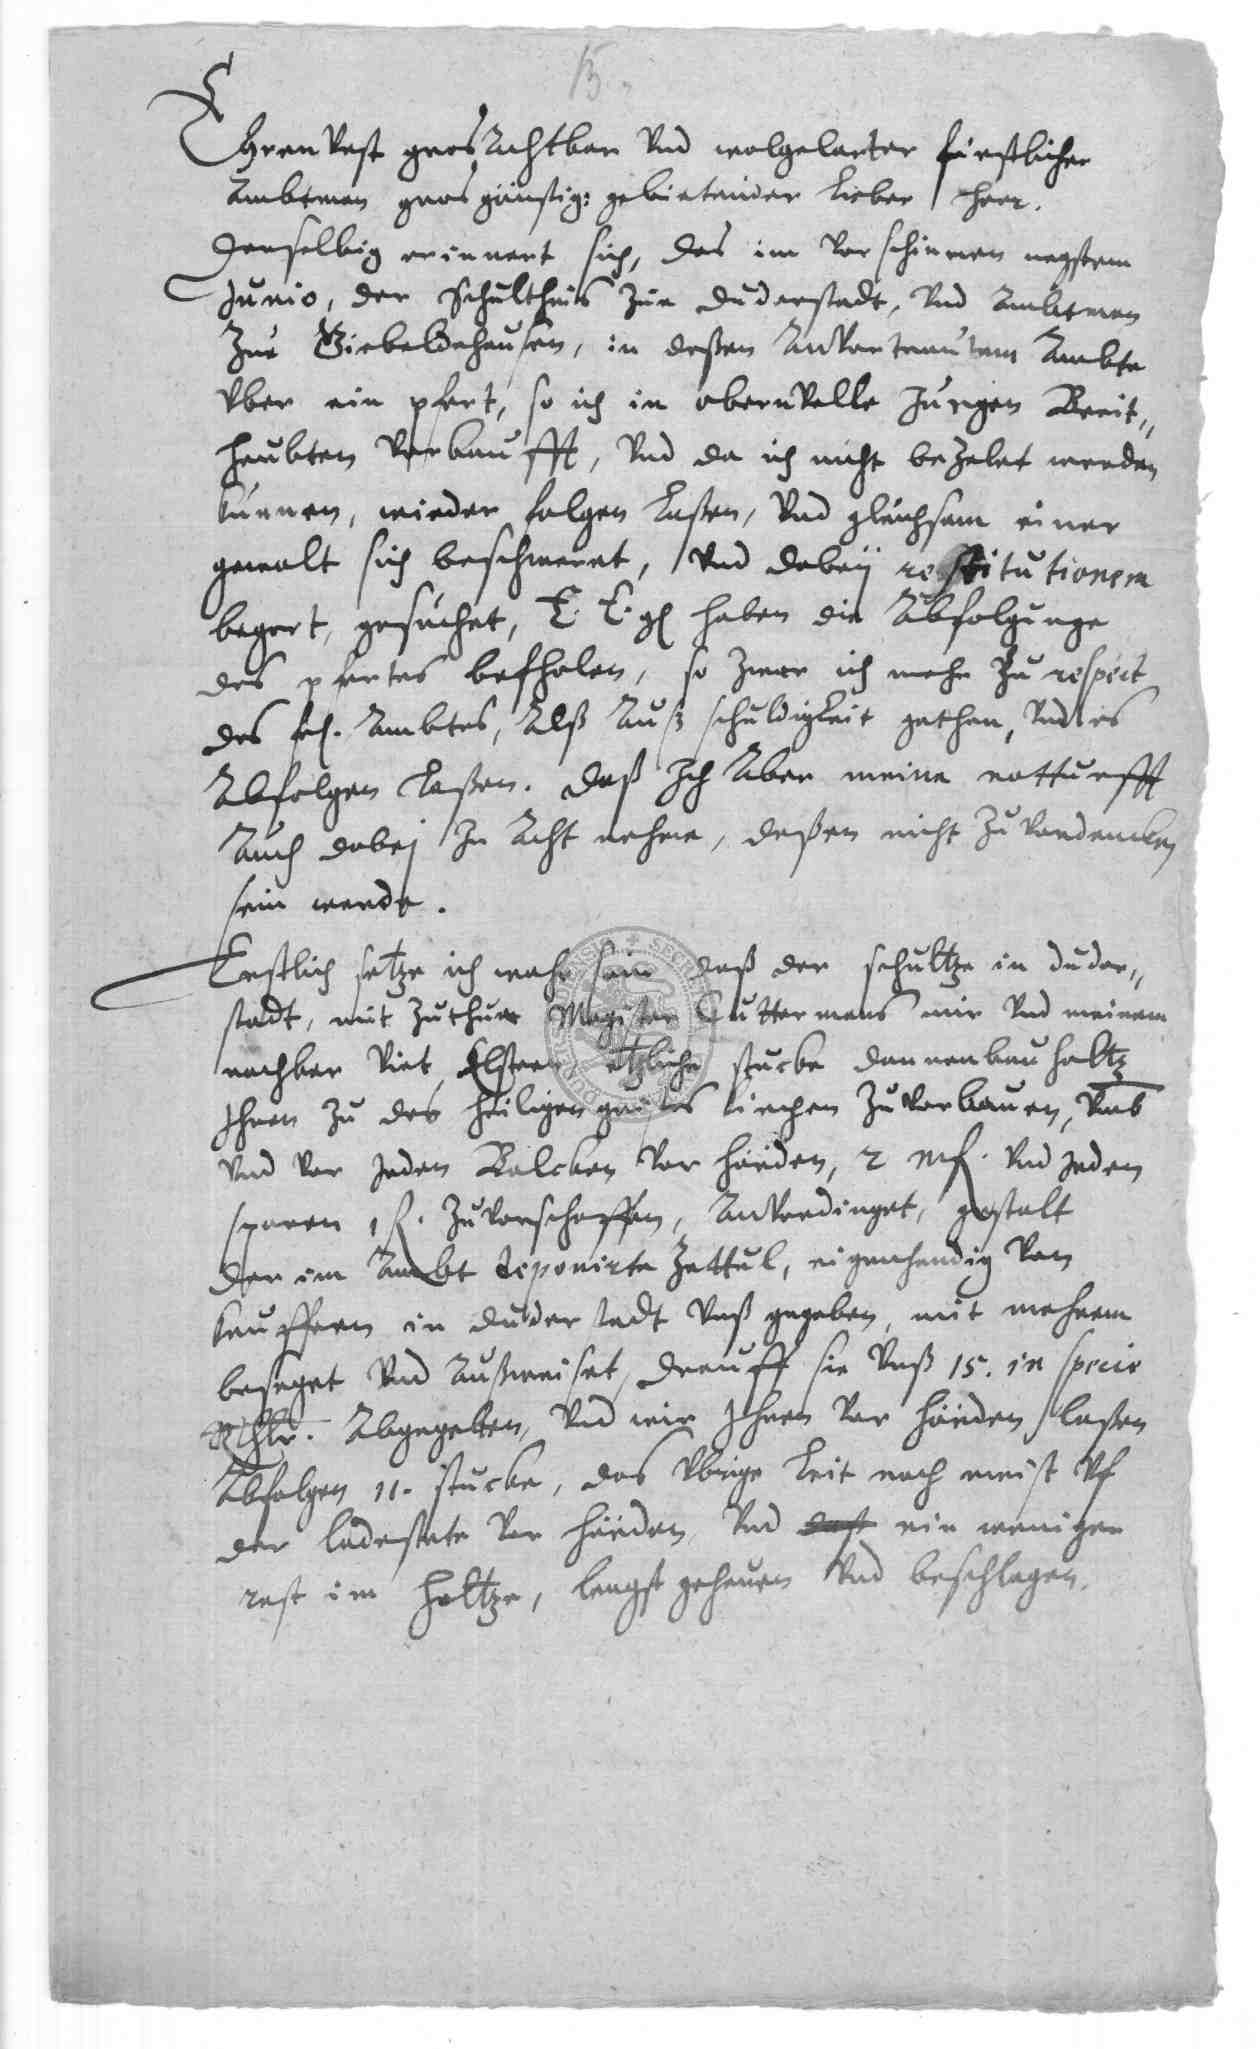 13.
Ehrenvest gros Achtbar vnd wolgelarter fürstlicher
Ambtman gros günstig: gebietender lieber Herr.
Derselbig erinnert sich, das im vorschienen negstem
Junio, der Schultheis zue Duderstadt, vnd Ambtman
zue Giebeldehausen, in deßen Anvertrautem Ambte
vber ein pfert, so ich in obernvelde Jurgen Breit„
heubten verkaufft, vnd da ich nicht bezalet werden
können, wieder folgen laßen, vnd gleichsam einer
gewalt sich beschweret, vnd dabeÿ restitutionem
begert, gesuchet, E. E. gl haben die Abfolgunge
des pfertes befholen, so zwar ich mehr zu respect
des fl. Ambtes, Alß Auß schuldigkeit gethan, vnd es
Abfolgen laßen. Daß Ich Aber meine notturfft
Auch dabej In Acht nehme, deßen nicht zu verdencken
sein werde.
Erstlich setze ich wahr sein daß der schultze in Duder„
stadt, mit zuthun Magister Luttermans mir vnd meinem
nachbar Viet Elstern, etzliche stucke dannenbauholtz
Ihren zu des heiligen geistes kirchen zu verbauen, vmb
vnd vor Jeden Balcken vor händen, 2 mf. vnd Jeden
sparen 1 f. zu verschaffen, Anverdinget, gestalt
der im Ambt deponirte Zettul, eigenhendig von
keuffern in Duderstadt vnß gegeben, mit mehrem
besaget vnd Außweiset, drauff sie vnß 15. in specie
Rthlr. Abgegeben, vnd wir Ihnen vor händen laßen
Abfolgen 11. stucke, das vbrige leit noch meist vf
der ladestete vor händen, vnd dast ein weniger
rest im holtze, lengst gehauen vnd beschlagen.